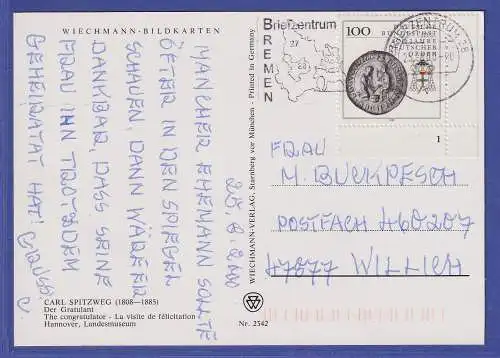 WIECHMANN-BILDKARTEN
MANCHER EHEMANN SOLLTE
ÖFTER IN DEN SPIEGEL
SCHAUEN, DANN WÄRE ER
DANKBAR, DASS SEINE
FRAU IHN TROTZDEM
GEHEIRATET HAT!
CARL SPITZWEG (1808—1885)
Der Gratulant
The congratulator - La visite de félicitation
Hannover, Landesmuseum
Nr. 2342
WIECHMANN-VERLAG, Starnberg vor München - Printed in Germany
Briefzentrum
BREMEN
27
100
DEUTSCHE BUNDESPOST
800 JAHRE
DEUTSCHER
ORDEN
1
FRAU
M. BUCKPESCH
POSTFACH 460207
47877 WILLICH